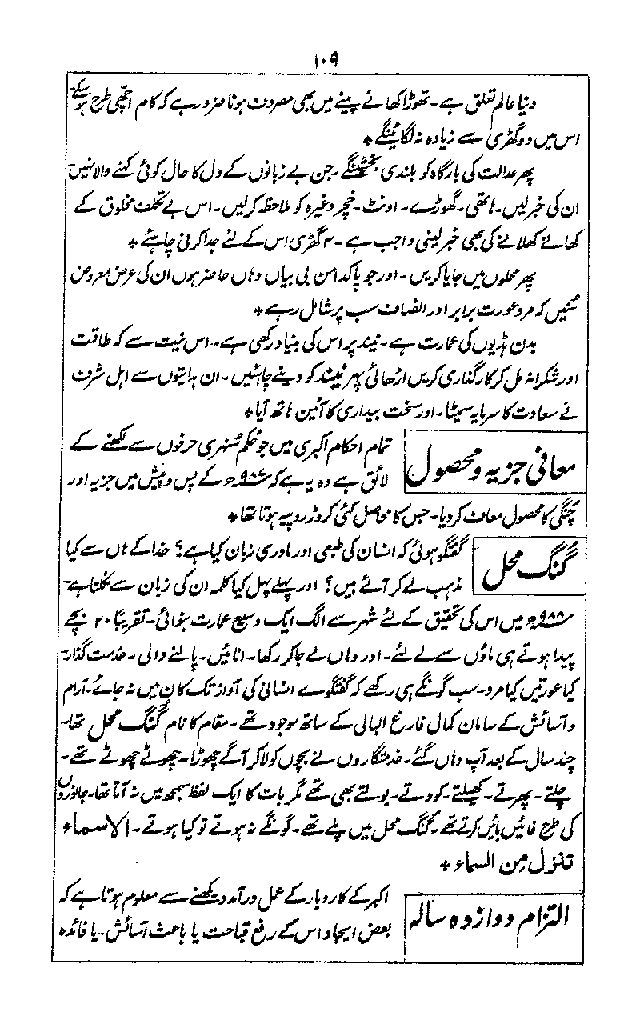 ۱۰۹
دنیا عالم تعلق ہے۔ تھوڑا کھانے پینے میں بھی مصروف ہونا ضرور ہے کہ کام اچھی طرح ہوسکے
اس میں دو گھڑی سے زیادہ نہ لگائینگے *
پھر عدالت کی بارگاہ کو بلندی بخشینگے۔ جن بے زبانوں کے دل کا حال کوئی کہنے والا نہیں
ان کی خبر لیں۔ ہاتھی۔ گھوڑے۔ اونٹ۔ خچر وغیرہ کو ملاحظہ کر لیں۔ اس بے تکلف مخلوق کے
کھانے کھلانے کی بھی خبر لینی واجب ہے۔ ۲ گھڑی اس کے لئے جدا کرنی چاہئے *
پھر محلوں میں جایا کریں۔ اور جو پاکدامن بی بیاں وہاں حاضر ہوں ان کی عرض معروض
سنیں کہ مرد عورت برابر اور انصاف سب پر شامل رہے *
بدن ہڈیوں کی عمارت ہے۔ نیند پر اس کی بنیاد رکھی ہے۔ اس نیت سے کہ طاقت
اور شکرانہ مل کر کارگذاری کریں اڑھائی پہر نیند کو دینے چاہئیں۔ ان ہدایتوں سے اہل شرف
نے سعادت کا سرمایہ سمیٹا۔ اور سخت بیداری کا آئین ہاتھ آیا *
معافی جزیہ و محصول
تمام احکام اکبری میں جو حکم سنہری حرفوں سے لکھنے کے
لائق ہے وہ یہ ہے کہ ۹۸۷ھ کے پس و پیش میں جزیہ اور
چنگی کا محصول معاف کر دیا۔ جس کا حاصل کئی کروڑ روپیہ ہوتا تھا *
گنگ محل
گفتگو ہوئی کہ انسان کی طبعی اور مادری زبان کیا ہے؟ خدا کے ہاں سے کیا
مذہب لے کر آتے ہیں؟ اور پہلے پہل کیا کلمہ ان کی زبان سے نکلتا ہے۔
۹۸۸ھ میں اس کی تحقیق کے لئے شہر سے الگ ایک وسیع عمارت بنوائی۔ تقریباً ۲۰ بچے
پیدا ہوتے ہی ماؤں سے لے لئے۔ اور وہاں لے جا کر رکھا۔ انائیں۔ پالنے والی۔ خدمت گذار
کیا عورتیں کیا مرد۔ سب گونگے ہی رکھے کہ گفتگوے انسانی کی آواز تک کان میں نہ جائے۔ آرام
و آسائش کے سامان کمال فارغ البالی کے ساتھ موجود تھے۔ مقام کا نام گنگ محل تھا۔
چند سال کے بعد آپ وہاں گئے۔ خدمتگاروں نے بچوں کو لا کر آگے چھوڑا۔ چھوٹے چھوٹے تھے۔
چلتے۔ پھرتے۔ کھیلتے۔ کودتے۔ بولتے بھی تھے مگر بات کا ایک لفظ سمجھ میں نہ آتا تھا۔ جانوروں
کی طرح غائیں بائیں کرتے تھے۔ گنگ محل میں پلے تھے۔ گونگے نہ ہوتے تو کیا ہوتے۔ الاسماء
تنزل من السماء *
التزام دوازدہ سالہ
اکبر کے کاروبار کے عمل درآمد دیکھنے سے معلوم ہوتا ہے کہ
بعض ایجاد اس کے رفع قباحت یا باعث آسائش۔ یا فائدہ